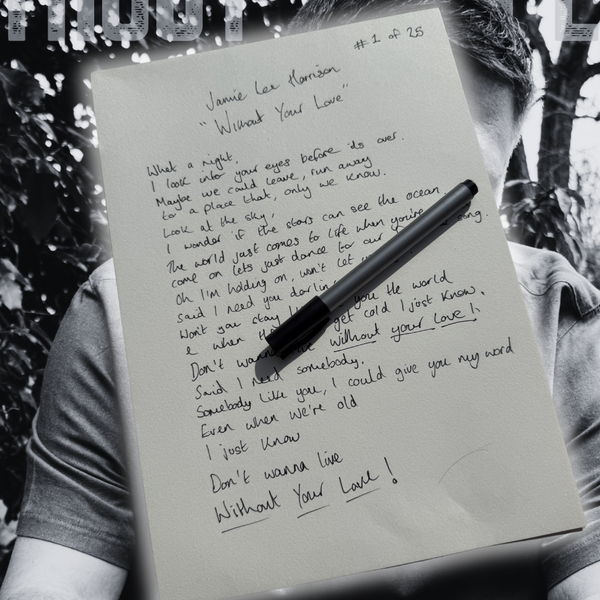 #1 of 25
Jamie Lee Harrison
"Without Your Love"
What a night,
I look into your eyes before its over.
Maybe we could leave, run away
to a place that, only we know.
Look at the sky,
I wonder if the stars can see the ocean
The world just comes to life when you're
come on lets just dance to our song.
Oh I'm holding on, won't let
Said I need you darling
Won't you stay you the world
when get cold I just know.
Don't wanna without your love!
Said I need somebody.
Somebody like you, I could give you my word
Even when we're old
I just know
Don't wanna live
Without Your Love!